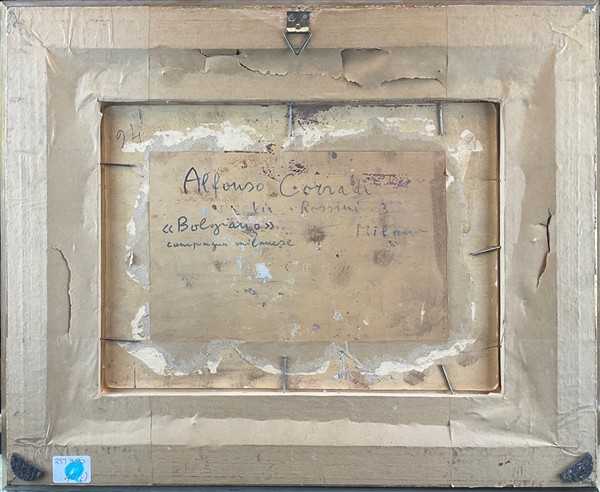 94
Alfonso Corradi
Via Rossini 3
«Bolgiano» Milano
campagna milanese